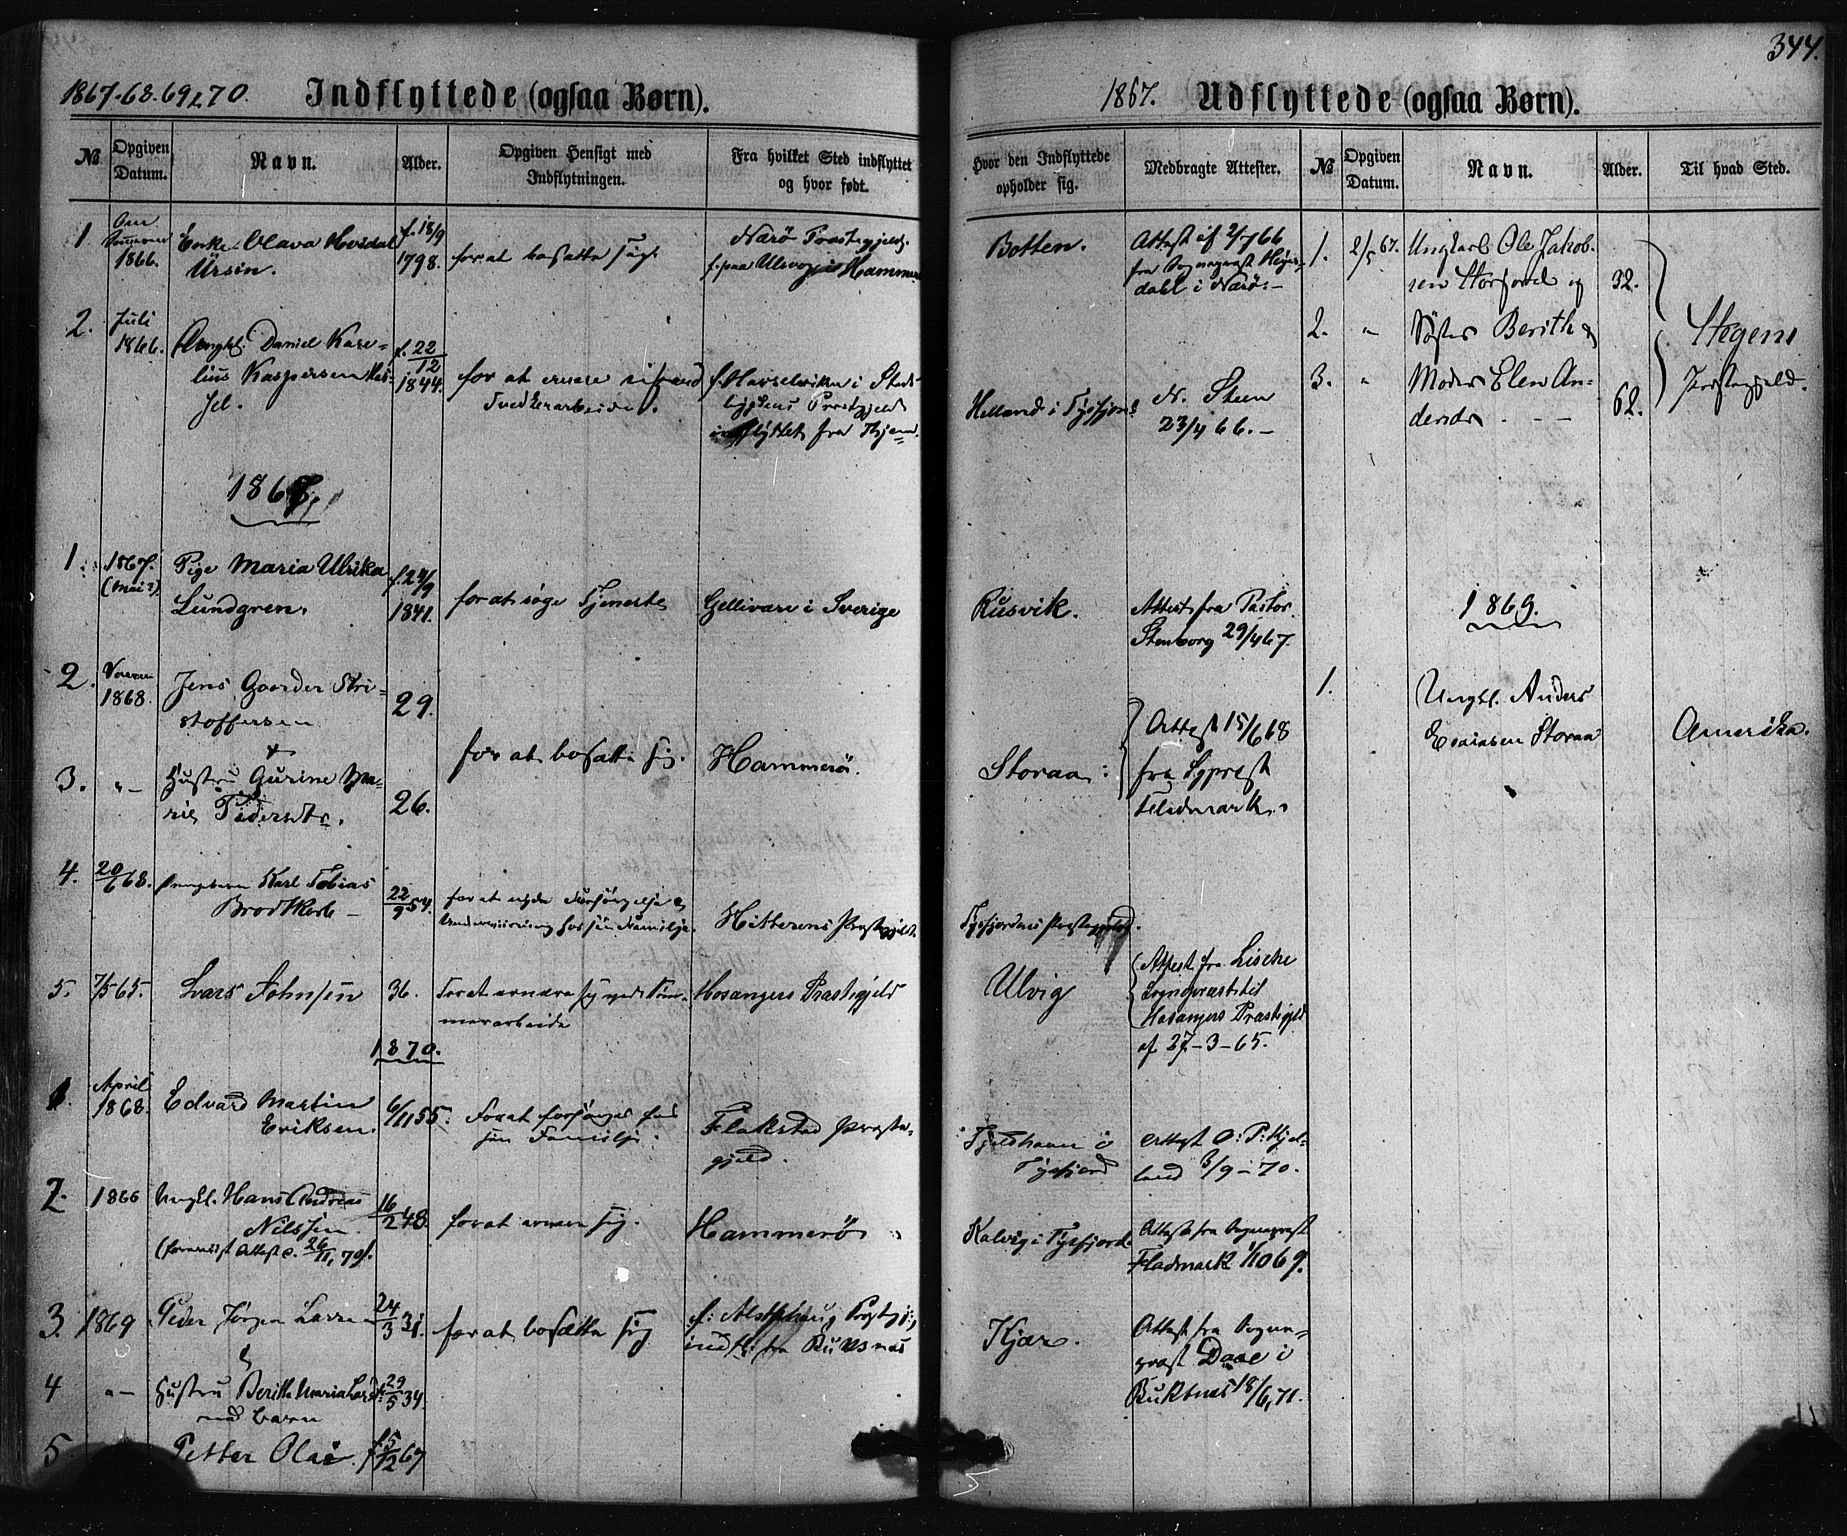 1867-68.69 & 70. Indflyttede (ogsaa Børn).
№
Opgiven Datum.
Navn.
Alder.
Opgiven Hensigt med Indflytningen.
Fra hvilket Sted indflyttet og hvor født.
1.
Sommeren 1866.
Enke Olava Hvidal
Ursin.
f. 18/9
1798.
for at bosætte sig.
Nærö Præstegjeld.
2.
Juli
1866.
Ungkl. Daniel Kare-
lius Kaspersen
f. 22/12
1844.
for at ernære sig ved
Snedkerarbeide.
f. i Stads-
bygdens Præstgjeld
indflyttet fra Hjem.
1867.
1.
1867.
(Mai?)
Pige Maria Ulrika
Lundgren.
f. 24/9
1841.
for at söge Tjeneste
Gellivare i Sverige
2.
1868.
Jens Gaarder Kri-
stoffersen
29.
for at bosætte sig.
Hammerö.
3.
"-
Hustru Gurine Ma-
rie Pedersdtr.
26.
4.
20/6 68.
Karl Tobias
Brodtkorb -
22/9 54.
for at nyde Forsörgelse &
Underviisning hos sin Familje.
Hitterens Præstegjeld.
5.
7/5 65.
Lars Johnsen
36.
For at ernære sig ved Töm-
merarbeide
Hosangers Præstegjeld
1870.
1.
April
1868.
Edvard Martin
Eriksen.
6/11 55.
For at forsörges hos
sin Familje.
Flakstad Præste-
gjeld.
2.
1866
Ungkl. Hans Andreas
Nilssen
(forevist Attest d. 26/11, 70).
16/2 48.
for at ernære sig.
Hammerö
3.
1869
Peder Jörgen Larsen
24/3 31.
for at bosætte sig
f: Alstahaug Prstgj;
indfl: fra Buksnæs
4
"-
Hustru Berith Maria
med barn
29/5 34.
5
Petter Olai.
f 5/12 67
344.
1867. Udflyttede (ogsaa Børn).
Hvor den Indflyttede opholder sig.
Medbragte Attester.
№
Opgiven Datum.
Navn.
Alder.
Til hvad Sted.
Botten.
Attest af 2/7 66
fra Sogneprest Heyer-
dahl i Nærö. -
Helland i Tysfjord
N. Steen
23/4 66. -
Rusvik.
Attest fra Pastor
Stenborg 29/4 67.
Storaa:
Attest 15/6 68
fra Sgprest
Fladmark.
Tysfjordens Præstegjeld.
Ulvig
Attest fra
Sognepræst til
Hosangers Præstegjeld
af 27-3-65.
i
Tysfjord
Attest O: P: Hjel-
land 8/9 - 70.
Kalvig i Tysfjord
Attest fra Sogneprest
Fladmark 1/10 69.
Kjær.
Attest fra Sogne-
prest Daae i
Buksnæs 18/6, 71.
1.
2/5 67.
Ungkarl Ole Jakob-
sen Storfjord og
32.
2.
"
Söster Berith &
3.
"
Moder Elen An-
dersdr
62.
Stegens
Præstegjeld.
1869.
1.
Ungkl. Anders
Esaiasen Storaa
Amerika.